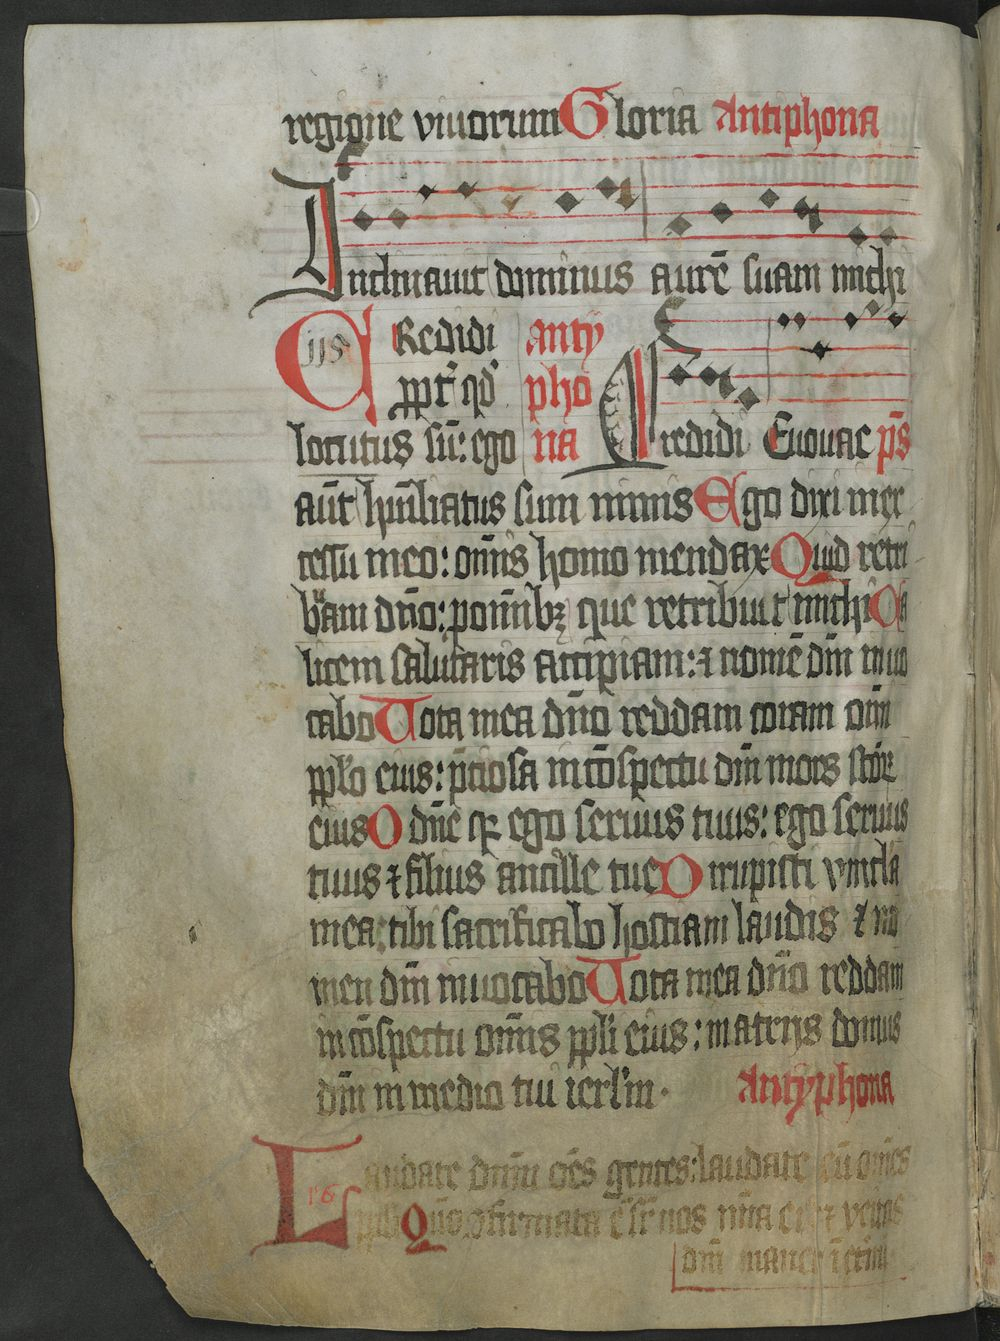 regione viuorum Gloria Antiphona
Inclinauit dominus aurē suam michi
115 CRedidi anty
ppt̄ qd̄ pho
locutus sū: ego na Credidi Euouae p̄s
aūt hu̅iliatus sum nimis Ego dixi in ex
cessu meo: om̄is homo mendax Quid retri
buam dn̄o: pro om̄ibꝫ que retribuit michi Ca
licem salutaris accipiam: ⁊ nomē dn̄i inuo
cabo Uota mea dn̄o reddam coram om̄i
pplo eius: p̄ciosa in cōspectu dn̄i mors scōꝝ
eius O dn̄e qꝛ ego seruus tuus: ego seruus
tuus ⁊ filius ancille tue Dirupisti vincla
mea: tibi sacrificabo hostiam laudis ⁊ no
men dn̄i inuocabo Uota mea dn̄o reddam
in cōspectu om̄is ppli eius: in atrijs domus
dn̄i in medio tui ierl̄m. Antyphona
Laudate dn̄m oēs gentes: laudate eū om̄es
116 ppli Qm̄ ꝯfirmata ē sr̄ nos mīa ei⁹ ⁊ veritas
dn̄i manet ī etnū